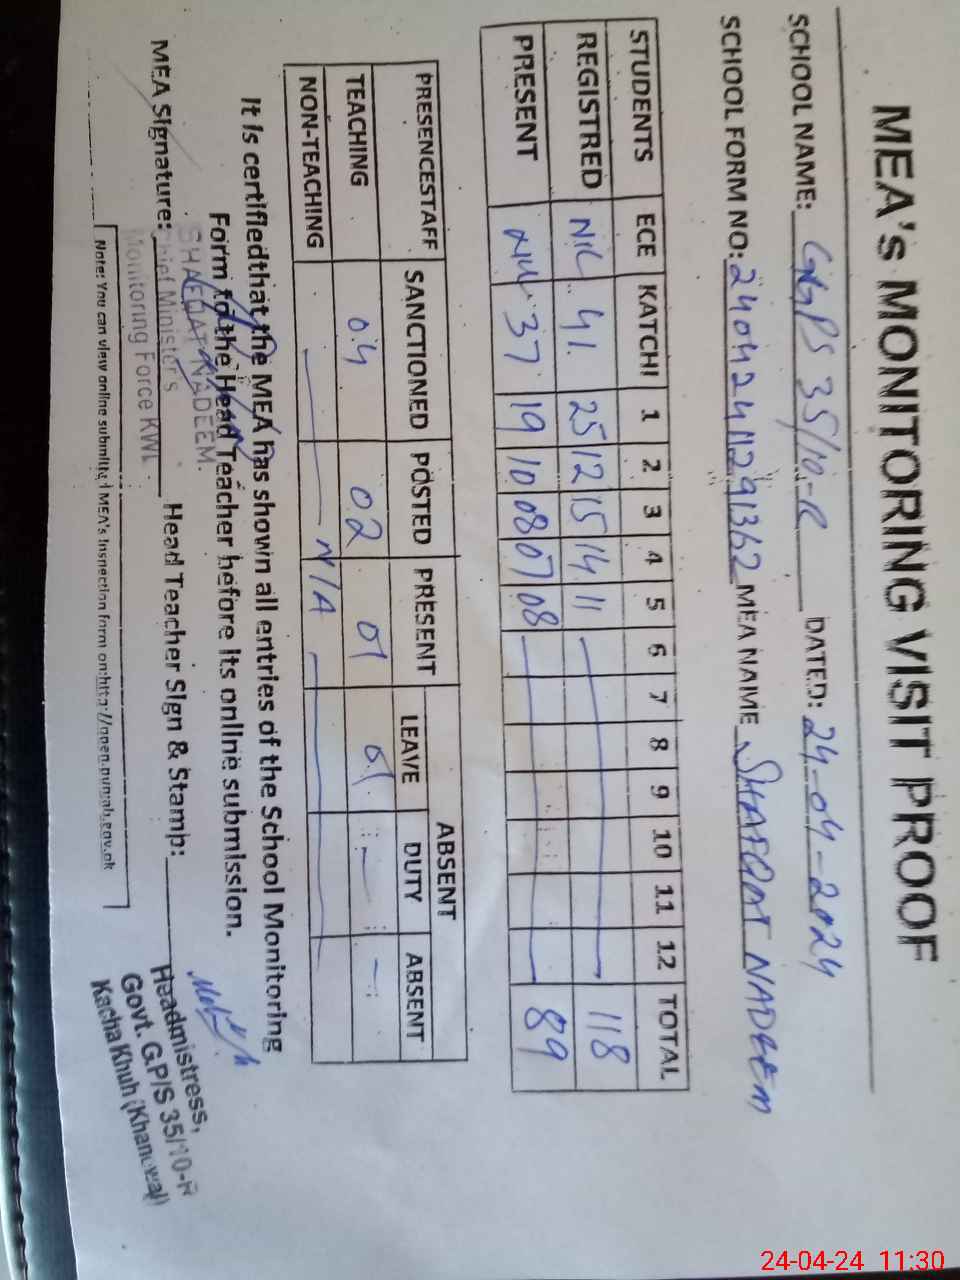 MEA's MONITORING VISIT PROOF
SCHOOL NAME: GGPS 35/10-R DATED: 24-04-2024
SCHOOL FORM NO: MEA NAME SHAFQAT NADEEM
STUDENTS ECE KATCHI 1 2 3 4 5 6 7 8 9 10 11 12 TOTAL
REGISTRED NIL 41 25 12 15 14 11 118
PRESENT NIL 37 19 10 08 07 08 89
PRESENCESTAFF SANCTIONED POSTED PRESENT ABSENT
LEAVE DUTY ABSENT
TEACHING 04 02 01 01 - -
NON-TEACHING N/A
It is certifiedthat the MEA has shown all entries of the School Monitoring
Form to the Head Teacher before its online submission.
MEA Signature: Head Teacher Sign & Stamp:
SHAFQAT NADEEM.
Chief Minister's
Monitoring Force KWL
Headmistress,
Govt. G.P/S 35/10-R
Kacha Khuh (Khanewal)
Note: You can view online submitted MEA's Inspection form on:http://open.punjab.gov.pk
24-04-24 11:30